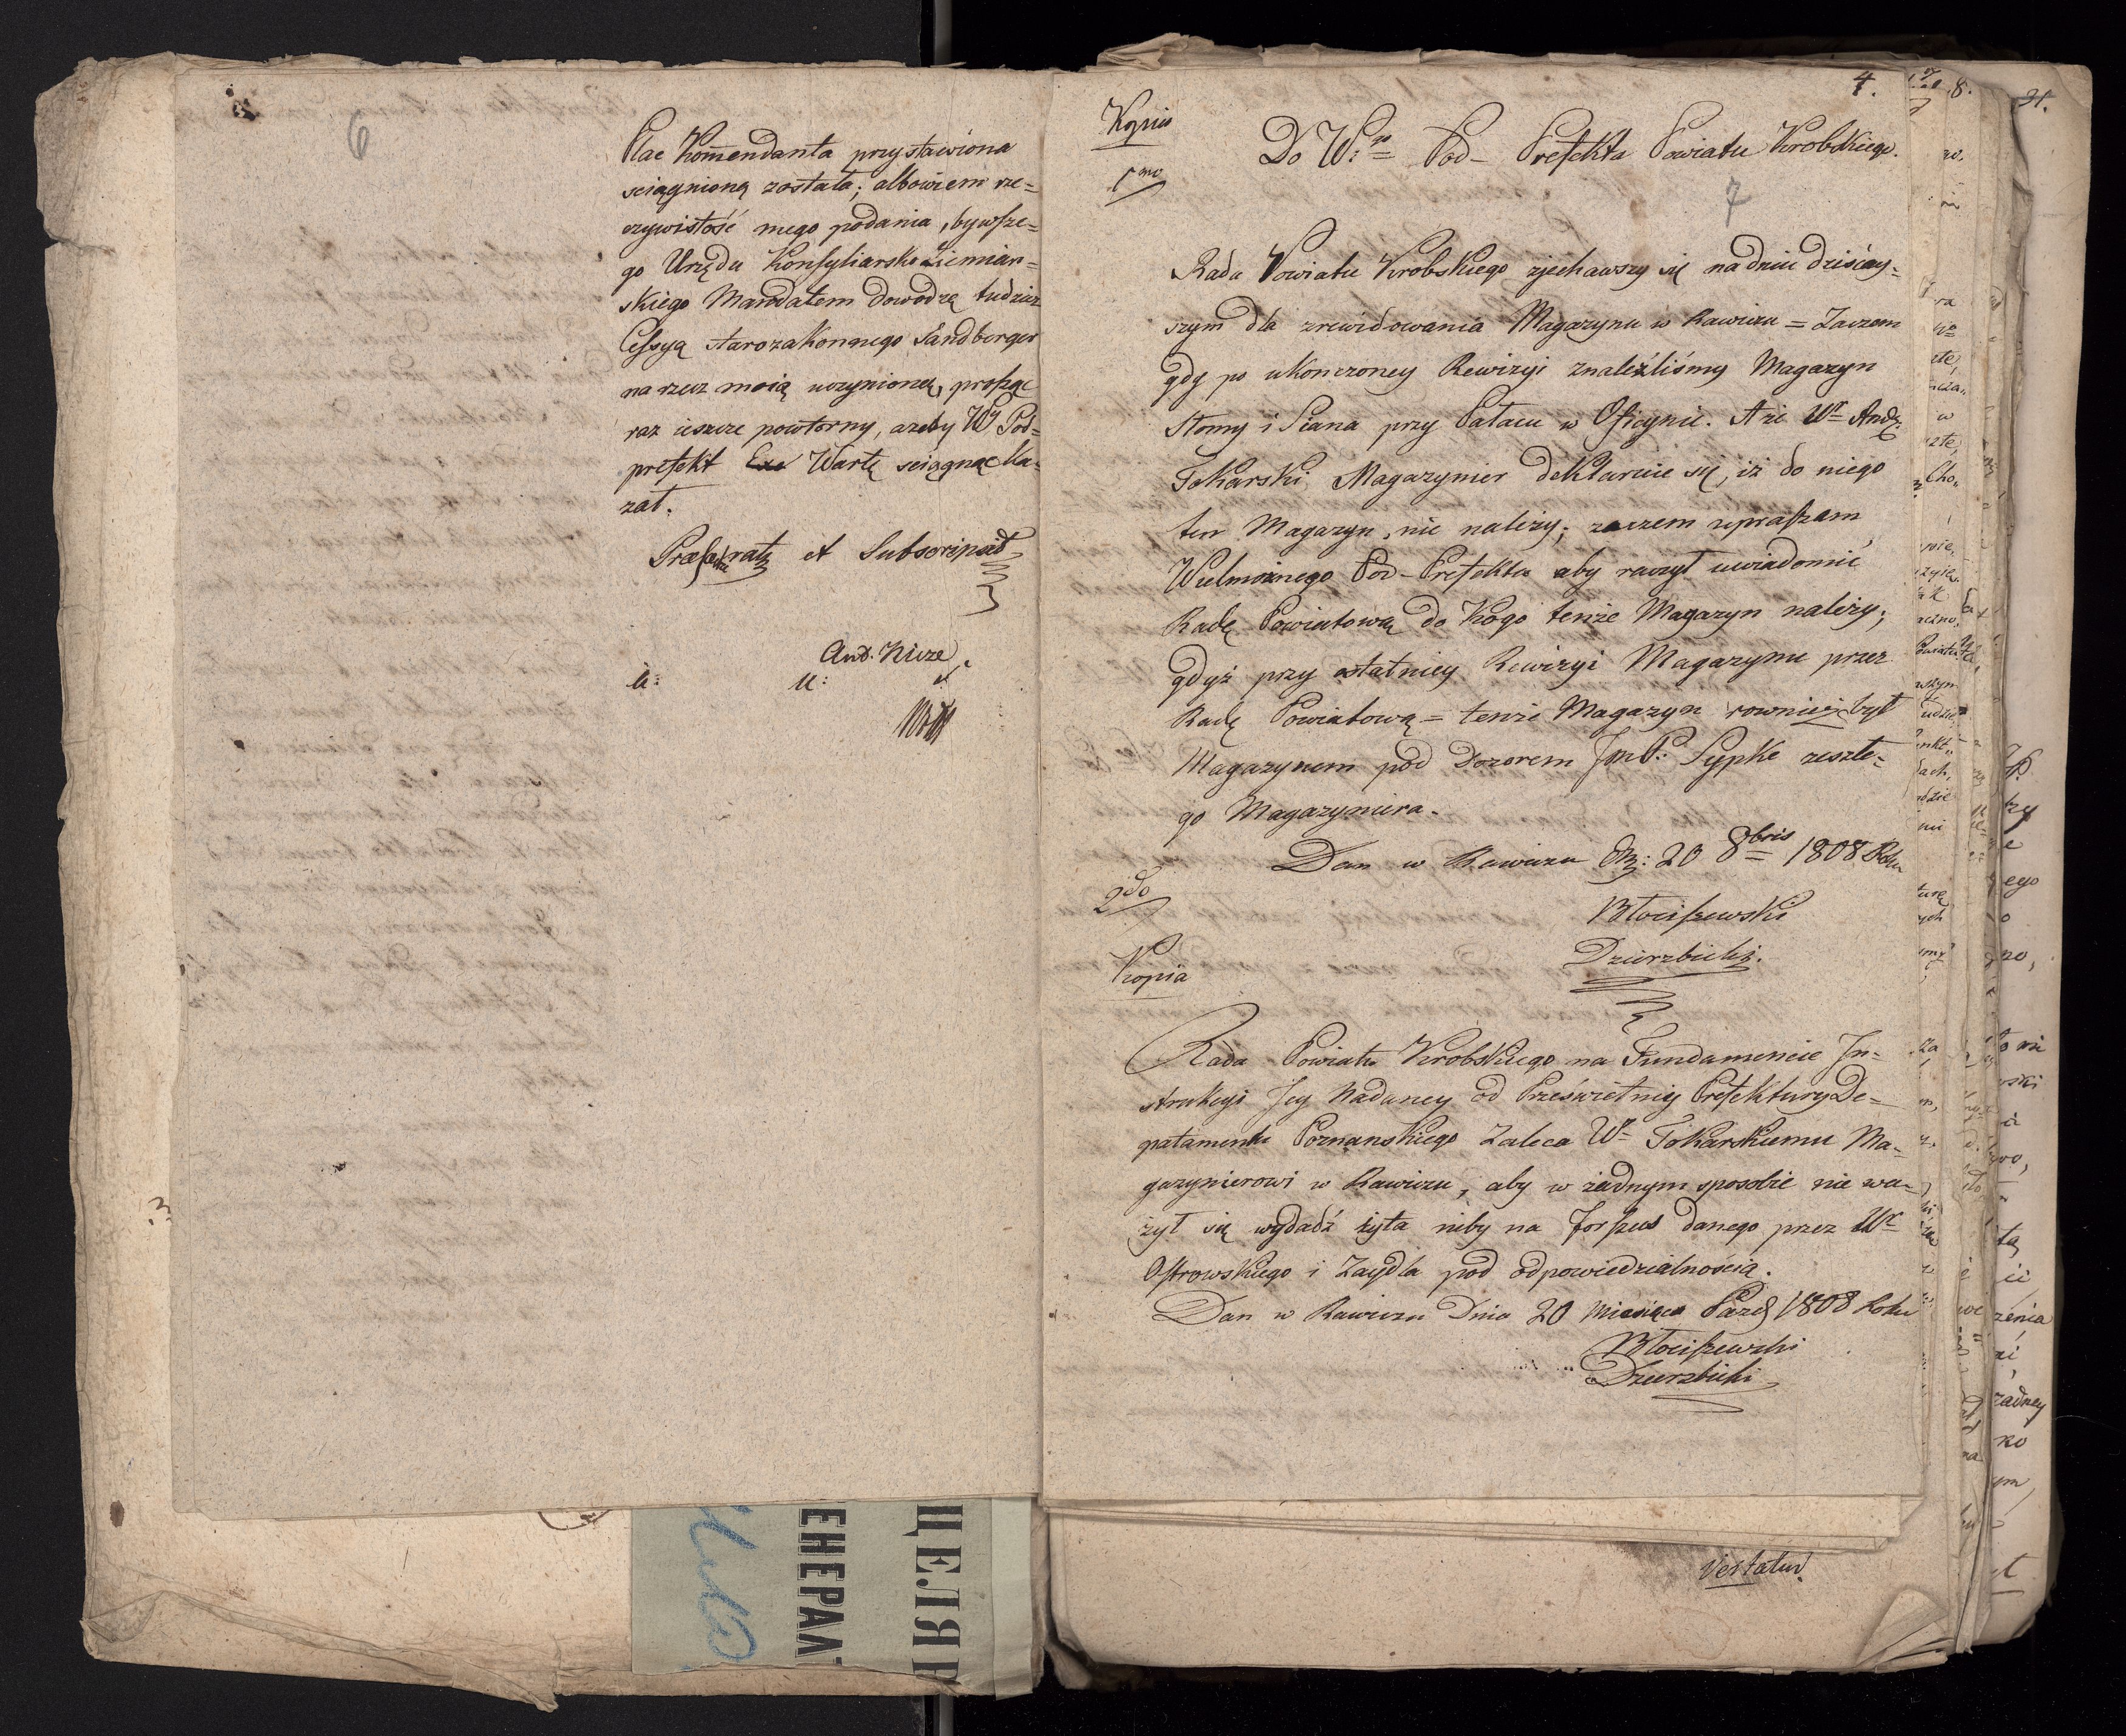 6
Plac Kommendanta przystawiona
sciągnioną została; albowiem rze=
czywistość mego podania, bywsze=
go Urzędu Konsyliarsko Ziemian=
skiego Mandatem dowodzę tudziez
Cessyą starozakonnego Sandberger
na rzecz moią uczynioną, prosząc
raz ieszcze powtorny, azeby WJ Pod=
prefekt Wartę sciągnąć ka=
zał.
et Subscripsit
And.
4.
Kopia
1mo
Do W: Pod-Prefekta Powiatu Krobskiego.
7
Rada Powiatu Krobskiego zjechawszy się na dniu dzisiey=
szym dla zrewidowania Magazynu w Rawiczu = Zaczem
gdy po ukonczoney Rewizyi znaleźliśmy Magazyn
Słomy i Siana przy Pałacu w Oficynie. A że Wr Andz:
Tokarski Magazynier deklaruie się, iż do niego
ten Magazyn nie należy; zaczem upraszam
Wielmożnego Pod-Prefekta aby raczył uwiadomić
Radę Powiatową do Kogo tenże Magazyn należy;
gdyż przy ostatniey Rewizyi Magazynu przez
Radę Powiatową = tenże Magazyn rownież był
Magazynem pod Dozorem JmP: Sypke zeszłe=
go Magazyniera.
Dan w Rawiczu D: 20 8bris 1808 Roku
2do
Błociszewski
Dzierzbicki.
Kopia
Rada Powiatu Krobskiego na Fundamencie In=
strukcyi Jey Nadaney od Prześwietney Prefektury De=
partamentu Poznanskiego Zaleca Wr Tokarskiemu Ma=
gazynierowi w Rawiczu, aby w żadnym sposobie nie wa=
żył się wydadź żyta niby na Forszus danego przez Wr
Ostrowskiego i Zaydla pod odpowiedzialnością.
Dan w Rawiczu Dnia 20 Miesiąca Pazd 1808 Roku
Błociszewski
Dzierzbicki
8.
31.
Vertatur.
ЦЕЛЯР
ЕНЕРАЛ